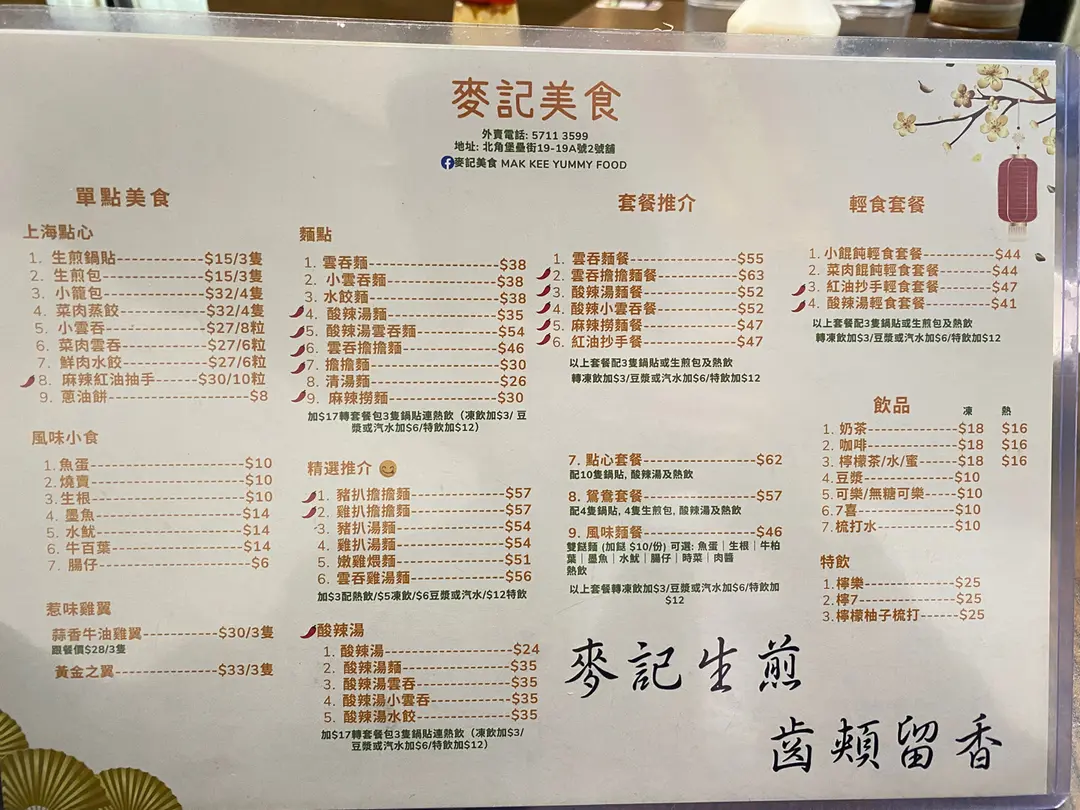 麥記美食
外賣電話: 5711 3599
地址: 北角堡壘街19-19A號2號舖
麥記美食 MAK KEE YUMMY FOOD
單點美食
上海點心
1. 生煎鍋貼-----------$15/3隻
2. 生煎包-------------$15/3隻
3. 小籠包-------------$32/4隻
4. 菜肉蒸餃-----------$32/4隻
5. 小雲吞-------------$27/8粒
6. 菜肉雲吞-----------$27/6粒
7. 鮮肉水餃-----------$27/6粒
8. 麻辣紅油抽手------$30/10粒
9. 蔥油餅------------------$8
風味小食
1. 魚蛋--------------------$10
2. 燒賣--------------------$10
3. 生根--------------------$10
4. 墨魚--------------------$14
5. 水魷--------------------$14
6. 牛百葉------------------$14
7. 腸仔---------------------$6
惹味雞翼
蒜香牛油雞翼-----------$30/3隻
跟餐價$28/3隻
黃金之翼---------------$33/3隻
麵點
1. 雲吞麵----------------$38
2. 小雲吞麵--------------$38
3. 水餃麵----------------$38
4. 酸辣湯麵--------------$35
5. 酸辣湯雲吞麵----------$54
6. 雲吞擔擔麵------------$46
7. 擔擔麵----------------$30
8. 清湯麵----------------$26
9. 麻辣撈麵--------------$30
加$17轉套餐包3隻鍋貼連熱飲（凍飲加$3/ 豆
漿或汽水加$6/特飲加$12）
精選推介
1. 豬扒擔擔麵------------$57
2. 雞扒擔擔麵------------$57
3. 豬扒湯麵--------------$54
4. 雞扒湯麵--------------$54
5. 嫩雞煨麵--------------$51
6. 雲吞雞湯麵------------$56
加$3配熱飲/$5凍飲/$6豆漿或汽水/$12特飲
酸辣湯
1. 酸辣湯----------------$24
2. 酸辣湯麵--------------$35
3. 酸辣湯雲吞------------$35
4. 酸辣湯小雲吞----------$35
5. 酸辣湯水餃------------$35
加$17轉套餐包3隻鍋貼連熱飲（凍飲加$3/
豆漿或汽水加$6/特飲加$12）
套餐推介
1. 雲吞麵餐--------------$55
2. 雲吞擔擔麵餐----------$63
3. 酸辣湯麵餐------------$52
4. 酸辣小雲吞餐----------$52
5. 麻辣撈麵餐------------$47
6. 紅油抄手餐------------$47
以上套餐配3隻鍋貼或生煎包及熱飲
轉凍飲加$3/豆漿或汽水加$6/特飲加$12
7. 點心套餐--------------$62
配10隻鍋貼, 酸辣湯及熱飲
8. 鴛鴦套餐--------------$57
配4隻鍋貼, 4隻生煎包, 酸辣湯及熱飲
9. 風味麵餐--------------$46
雙餸麵 (加餸 $10/份) 可選: 魚蛋｜生根｜牛柏
葉｜墨魚｜水魷｜腸仔｜時菜｜肉醬
熱飲
以上套餐轉凍飲加$3/豆漿或汽水加$6/特飲加
$12
輕食套餐
1. 小餛飩輕食套餐---------$44
2. 菜肉餛飩輕食套餐-------$44
3. 紅油抄手輕食套餐-------$47
4. 酸辣湯輕食套餐---------$41
以上套餐配3隻鍋貼或生煎包及熱飲
轉凍飲加$3/豆漿或汽水加$6/特飲加$12
飲品 凍 熱
1. 奶茶-------------$18 $16
2. 咖啡-------------$18 $16
3. 檸檬茶/水/蜜-----$18 $16
4. 豆漿-------------$10
5. 可樂/無糖可樂----$10
6. 7喜--------------$10
7. 梳打水-----------$10
特飲
1. 檸樂-------------$25
2. 檸7--------------$25
3. 檸檬柚子梳打-----$25
麥記生煎
齒頰留香